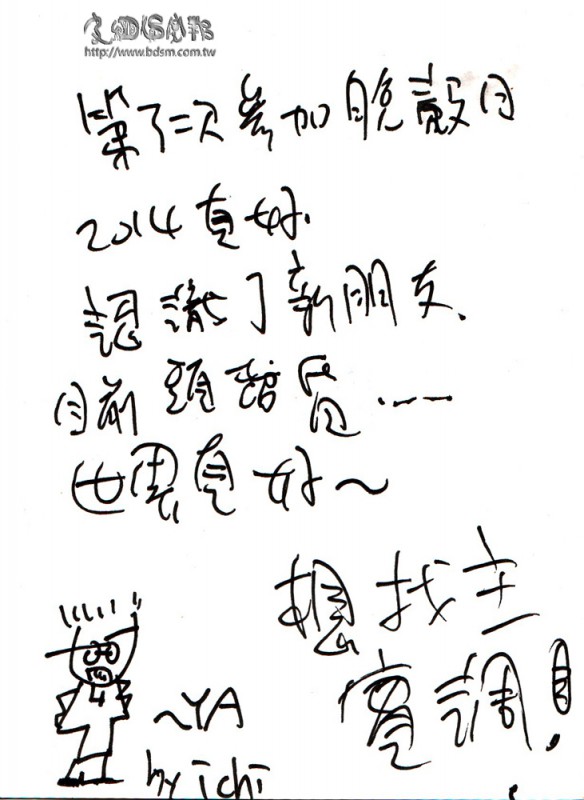 http://www.bdsm.com.tw
第了二次參加晚殼日
2014真好.
認識了新朋友、
目前
世界真好～
想找主
實調!
~YA
by ichi